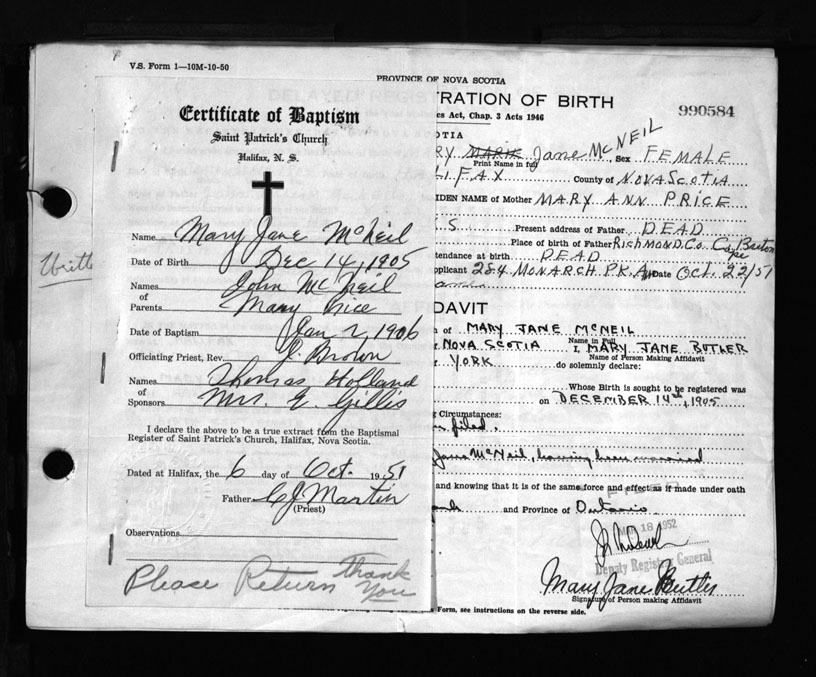 V.S. Form 1—10M-10-50
Certificate of Baptism
Saint Patrick's Church
Halifax, N. S.
Name Mary Jane McNeil
Date of Birth Dec 14, 1905
Names John McNeil
of
Parents Mary Price
Date of Baptism Jan 2, 1906
Officiating Priest, Rev. J. Brown
Names Thomas Holland
of
Sponsors Mrs. E. Gillis
I declare the above to be a true extract from the Baptismal
Register of Saint Patrick's Church, Halifax, Nova Scotia.
Dated at Halifax, the 6 day of Oct. 1951
Father C J Martin
(Priest)
Observations
Please Return Thank
You
PROVINCE OF NOVA SCOTIA
TRATION OF BIRTH
es Act, Chap. 3 Acts 1946
990584
OTIA
RY MARIE Jane McNEIL, Sex FEMALE
Print Name in full
LIFAX County of NOVA SCOTIA
IDEN NAME of Mother MARY ANN PRICE
S. Present address of Father DEAD
Place of birth of Father RICHMOND Co. Cape Breton
tendance at birth DEAD
pplicant 284 MONARCH PK. Date OCT. 23/51
DAVIT
of MARY JANE MCNEIL
Name in Full
NOVA SCOTIA I, MARY JANE BUTLER
Name of Person Making Affidavit
YORK do solemnly declare:
Whose Birth is sought to be registered was
on DECEMBER 14th, 1905
g Circumstances:
filed.
Jane McNeil, having been
and knowing that it is of the same force and effect as if made under oath
and Province of Ontario
MAR 18 1952
Deputy Registrar General
Mary Jane Butler
Signature of Person making Affidavit
Form, see instructions on the reverse side.